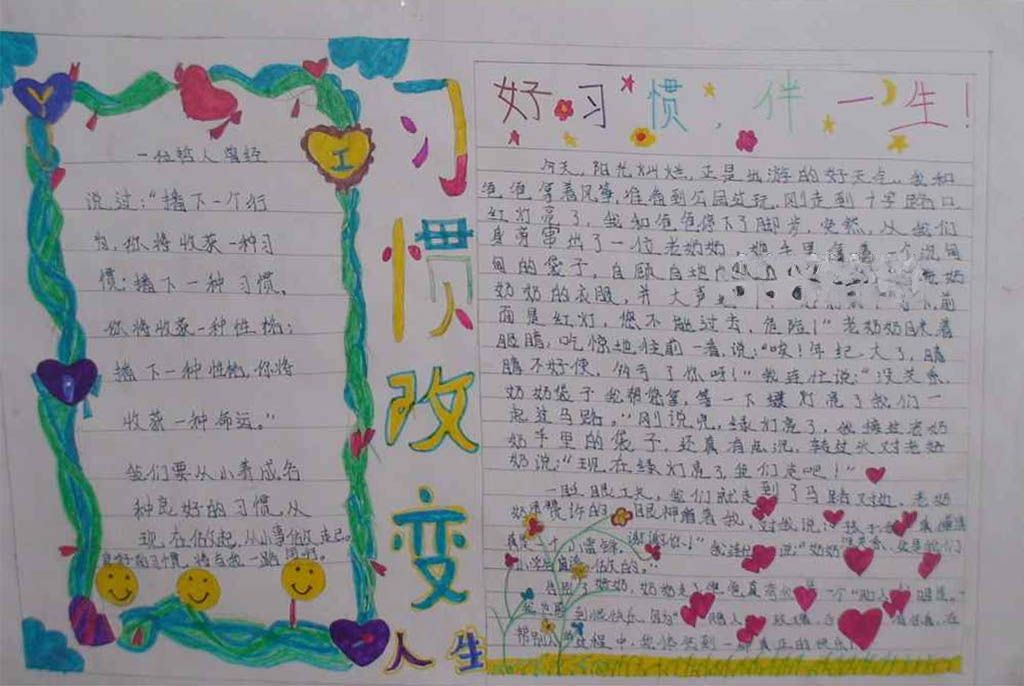 一位哲人曾经
说过:“播下一个行
为,你将收获一种习
惯;播下一种习惯,
你将收获一种性格;
播下一种性格,你将
收获一种命运。”
我们要从小养成各
种良好的习惯,从
现在做起,从小事做起。
良好的习惯,将与我一路同行。
习惯改变
人生
好习惯,伴一生!
今天,阳光灿烂,正是出游的好天气。我和
爸爸拿着风筝准备到公园游玩。刚走到十字路口
红灯亮了,我和爸爸停下了脚步,突然,从我们
身旁窜出了一位老奶奶,她手里拿着一个沉甸
甸的袋子,自顾自地
奶奶的衣服,并大声
面是红灯,您不能过去,危险!”老奶奶眯着
眼睛,吃惊地往前一看,说:“唉!年纪大了,眼
睛不好使,伤亏了你呀!”我连忙说:“没关系,
奶奶袋子我帮您拿,等一下绿灯亮了我们一
起过马路。”刚说完,绿灯亮了,我接过老奶
奶手里的袋子,还真有点沉,转过头对老奶
奶说:“现在绿灯亮了我们走吧!”
一眨眼工夫,我们就走到了马路对边,老奶
奶 赞许的 眼神看着我,对我说
谢谢你!”我连忙说:“奶奶 没关系,这是我们
小学生应该做的。”
告别了奶奶,
我感到很快乐,因为“
帮助 过程中,我体会到一种真正的快乐!